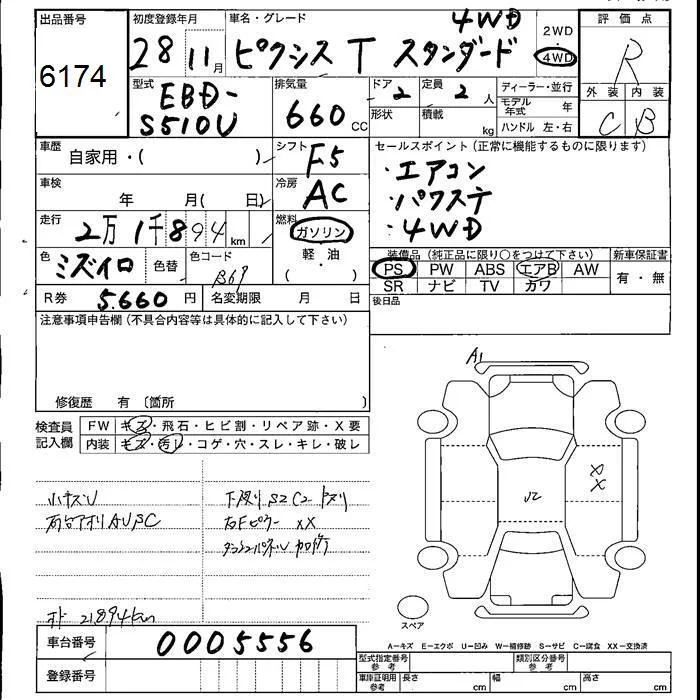 出品番号 初度登録年月 車名・グレード 4WD 2WD 評価点
6174 28 11月 ピクシス T スタンダード 4WD R
型式 排気量 ドア 定員 ディーラー・並行 外装 内装
EBD- 660 CC 2 2 人 モデル年式 年 C B
S510U 形状 積載 kg ハンドル 左・右
車歴 自家用・( ) シフト F5 セールスポイント(正常に機能するものに限ります)
車検 年 月( 日) 冷房 AC ・エアコン
・パワステ
・4WD
走行 2万1千894 km 燃料 ガソリン
軽・油
( )
色 ミズイロ 色替 色コード B69
装備品(純正品に限り○をつけて下さい) 新車保証書
PS PW ABS エアB AW 有・無
SR ナビ TV カワ
R券 5.660 円 名変期限 月 日 後日品
注意事項申告欄(不具合内容等は具体的に記入して下さい)
修復歴 有 〔箇所 〕
A1
検査員 FW キズ・飛石・ヒビ割・リペア跡・X要
記入欄 内装 キズ・汚レ・コゲ・穴・スレ・キレ・破レ
XX
小キズU 下廻り S2 C2
右Fピラー XX
オド 21,894km
スペア
車台番号 0005556
A-キズ E-エクボ U-凹み W-補修跡 S-サビ C-腐食 XX-交換済
登録番号
型式指定番号 参考 類別区分番号 参考
車庫証明用 参考 長さ cm 幅 cm 高さ cm